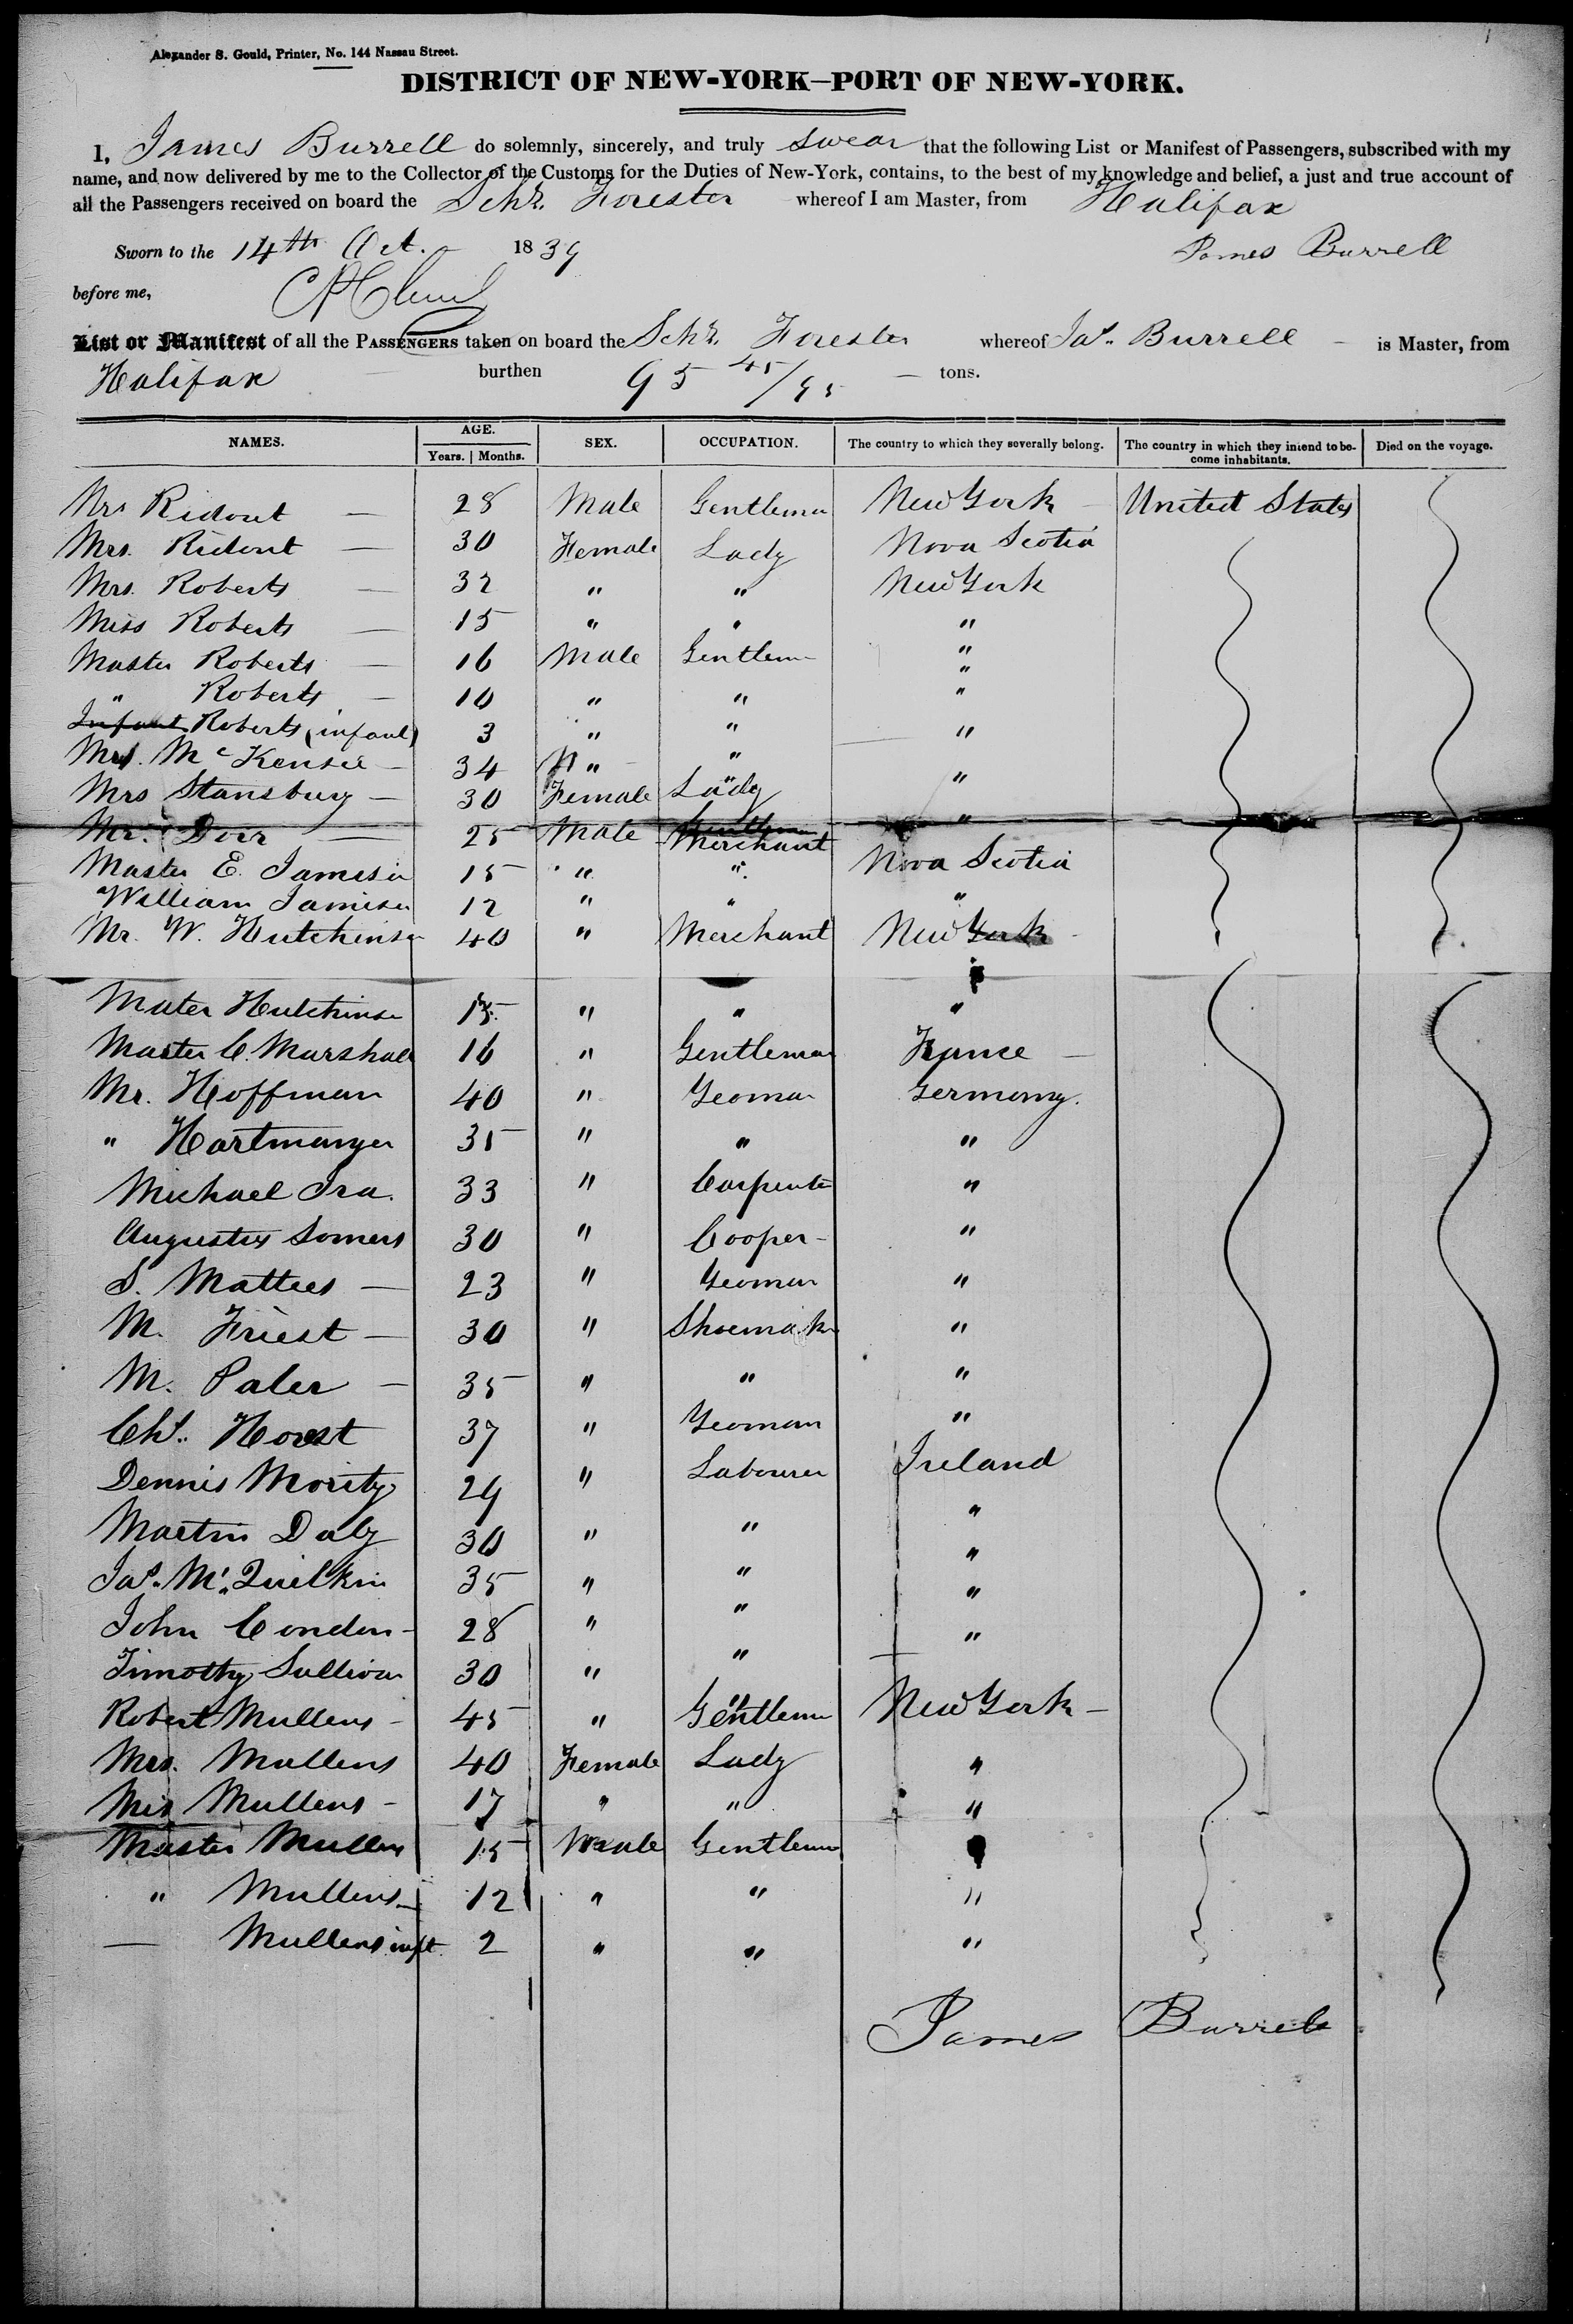 Alexander S. Gould, Printer, No. 144 Nassau Street.
DISTRICT OF NEW-YORK—PORT OF NEW-YORK.
I, James Burrell do solemnly, sincerely, and truly swear that the following List or Manifest of Passengers, subscribed with my
name, and now delivered by me to the Collector of the Customs for the Duties of New-York, contains, to the best of my knowledge and belief, a just and true account of
all the Passengers received on board the Schr. Forester whereof I am Master, from Halifax
Sworn to the 14th Oct. 1839 James Burrell
before me,
List or Manifest of all the PASSENGERS taken on board the Schr. Forester whereof Jas. Burrell is Master, from
Halifax burthen 95 45/95 tons.
NAMES. AGE. SEX. OCCUPATION. The country to which they severally belong. The country in which they intend to be- Died on the voyage.
Years. | Months. come inhabitants.
Mr Ridout — 28 Male Gentleman New York — United States
Mrs. Ridout — 30 Female Lady Nova Scotia
Mrs. Roberts — 32 " " New York
Miss Roberts — 15 " " "
Master Roberts — 16 Male Gentlem "
" Roberts — 10 " " "
Infant Roberts (infant) 3 " " "
McKensie — 34 " "
Mrs Stansbury — 30 Female Lady "
Mr. Dorr — 25 Male Gentleman Merchant "
Master E. Jamison 15 " " Nova Scotia
William Jamison 12 " " "
Mr. W. Hutchinson 40 " Merchant New York
Mater Hutchinson 15 " " "
Master C. Marshall 16 " Gentleman France —
Mr. Hoffman 40 " Yeoman Germany.
" Hartmanyer 35 " " "
Michael Ira. 33 " Carpenter "
Augustus Somers 30 " Cooper "
S. Mattees — 23 " Yeoman "
M. Friest — 30 " Shoemaker "
M. Paler — 35 " " "
Chs. Horst 37 " Yeoman "
Dennis Mority 29 " Labourer Ireland
Martin Daly 30 " " "
Jas. Mc.Quilkin 35 " " "
John Condon 28 " " "
Timothy Sullivan 30 " " "
Robert Mullens 45 " Gentlem New York —
Mrs. Mullens 40 Female Lady "
Mis Mullens 17 " " "
Master Mullens 15 Male Gentlem "
" Mullens 12 " " "
— Mullens inft. 2 " " "
James Burrell